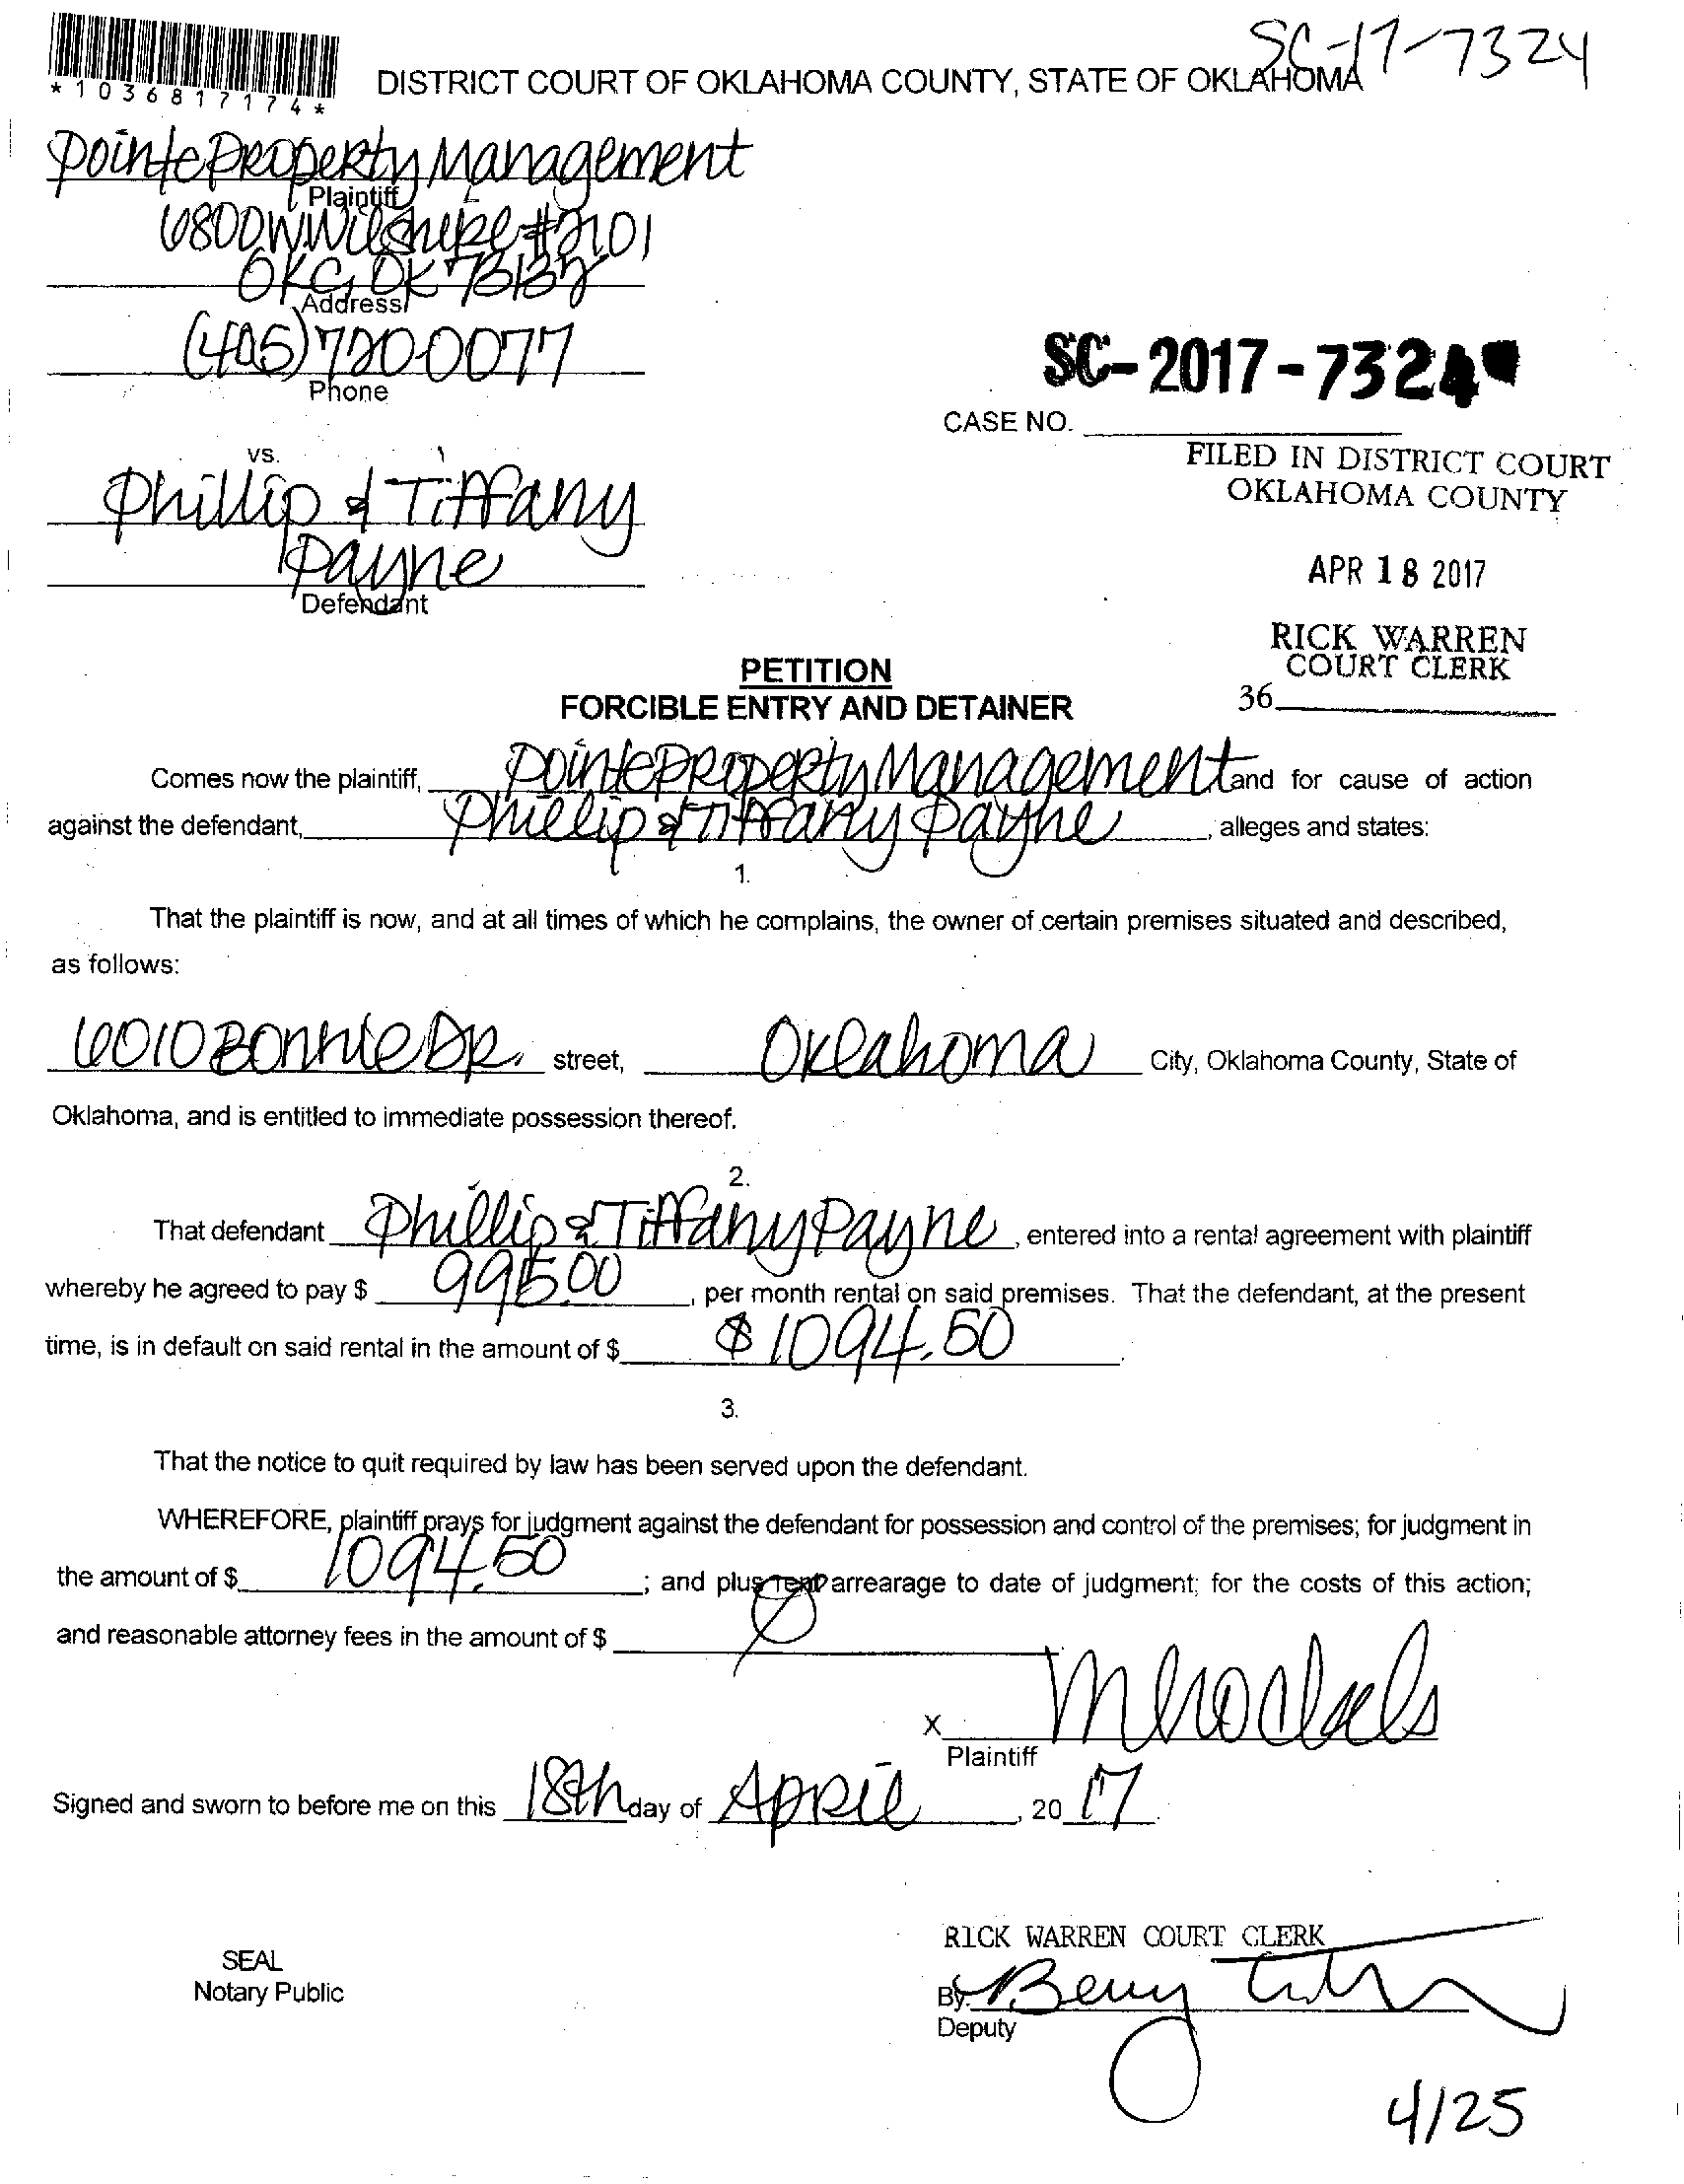 SC-17-7324
*1036817174*
DISTRICT COURT OF OKLAHOMA COUNTY, STATE OF OKLAHOMA
Pointe Property Management
Plaintiff
6800 W Wilshire #2101
OKC, OK 73132
Address
(405) 720-0077
Phone
SC-2017-7324
CASE NO.
FILED IN DISTRICT COURT
OKLAHOMA COUNTY
vs.
Phillip & Tiffany
Payne
Defendant
APR 18 2017
RICK WARREN
COURT CLERK
36
PETITION
FORCIBLE ENTRY AND DETAINER
Comes now the plaintiff, Pointe Property Management and for cause of action
against the defendant, Phillip & Tiffany Payne, alleges and states:
1.
That the plaintiff is now, and at all times of which he complains, the owner of certain premises situated and described,
as follows:
6010 Bonnie Dr. street, Oklahoma City, Oklahoma County, State of
Oklahoma, and is entitled to immediate possession thereof.
2.
That defendant Phillip & Tiffany Payne, entered into a rental agreement with plaintiff
whereby he agreed to pay $ 995.00, per month rental on said premises. That the defendant, at the present
time, is in default on said rental in the amount of $ $1094.50
3.
That the notice to quit required by law has been served upon the defendant.
WHEREFORE, plaintiff prays for judgment against the defendant for possession and control of the premises; for judgment in
the amount of $ 1094.50; and plus rent arrearage to date of judgment; for the costs of this action;
and reasonable attorney fees in the amount of $
X
Plaintiff
Signed and sworn to before me on this 18th day of April, 20 17.
RICK WARREN COURT CLERK
SEAL
Notary Public
By:
Deputy
4/25